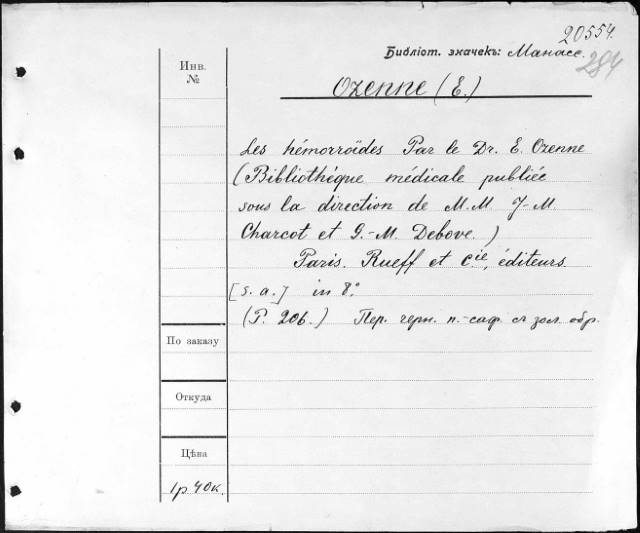 20554.
Библіот. значекъ: Манасе.
284
Инв.
№
Ozenne (E.)
Les hémorroïdes Par le Dr. E. Ozenne
(Bibliothéque médicale publiée
sous la direction de M.M. J-M
Charcot et G.-M. Debove.)
Paris. Rueff et cie, éditeurs.
[s.a.] in 8°
(P. 206.) Пер. черн. п.-саф. съ зол. обр.
По заказу
Откуда
Цѣна
1р 40к.